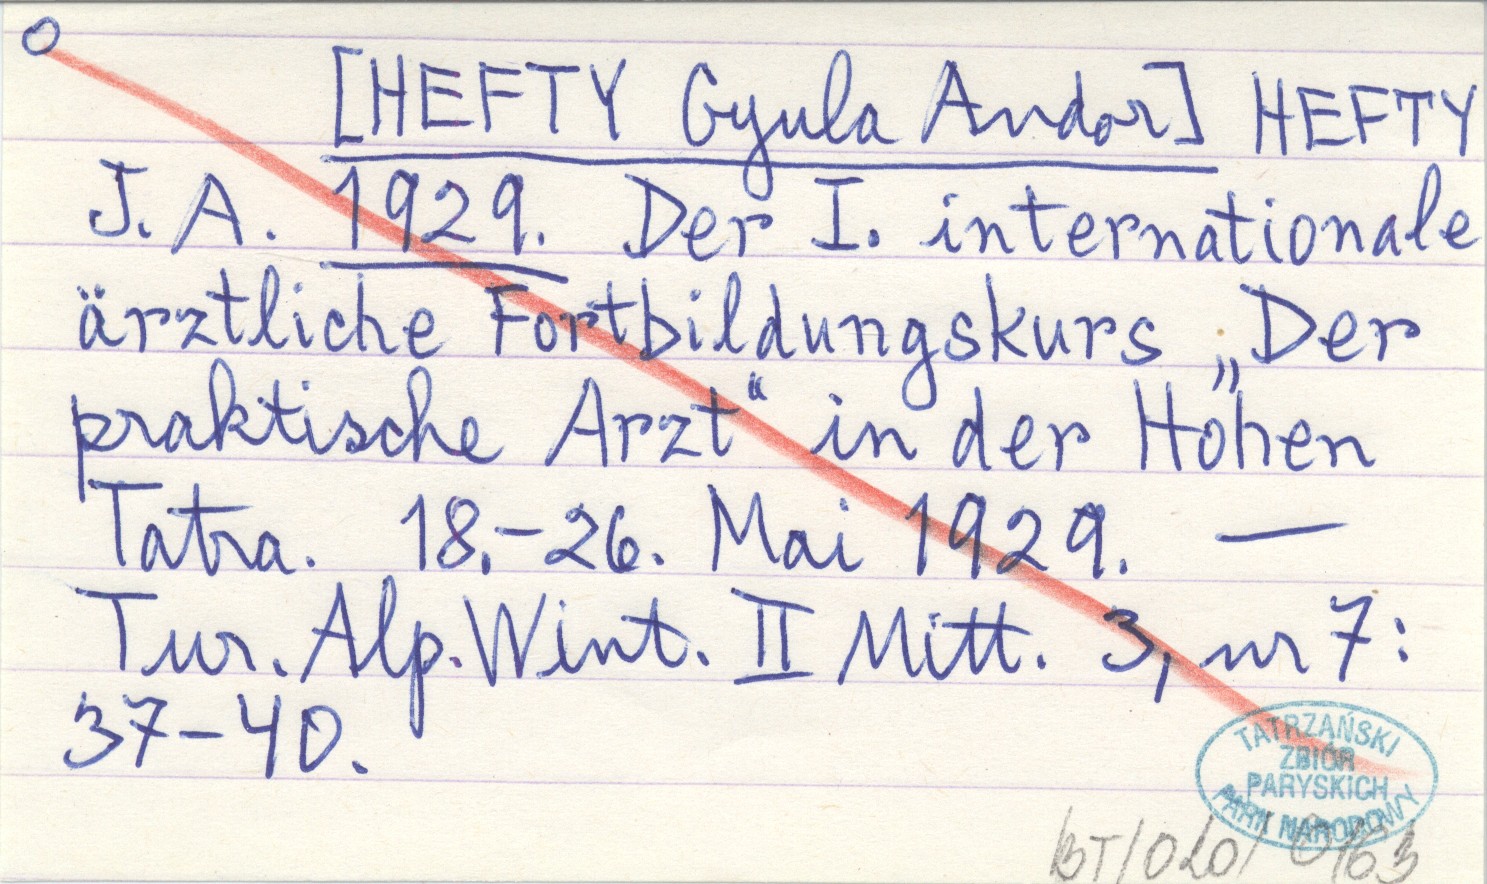 [HEFTY Gyula Andor] HEFTY
J. A. 1929. Der I. internationale
ärztliche Fortbildungskurs „Der
praktische Arzt“ in der Hohen
Tatra. 18.–26. Mai 1929. —
Tur. Alp. Wint. II Mitt. 3, nr 7:
37–40.
TATRZAŃSKI
ZBIÓR
PARYSKICH
PARK NARODOWY
BT/020/0163